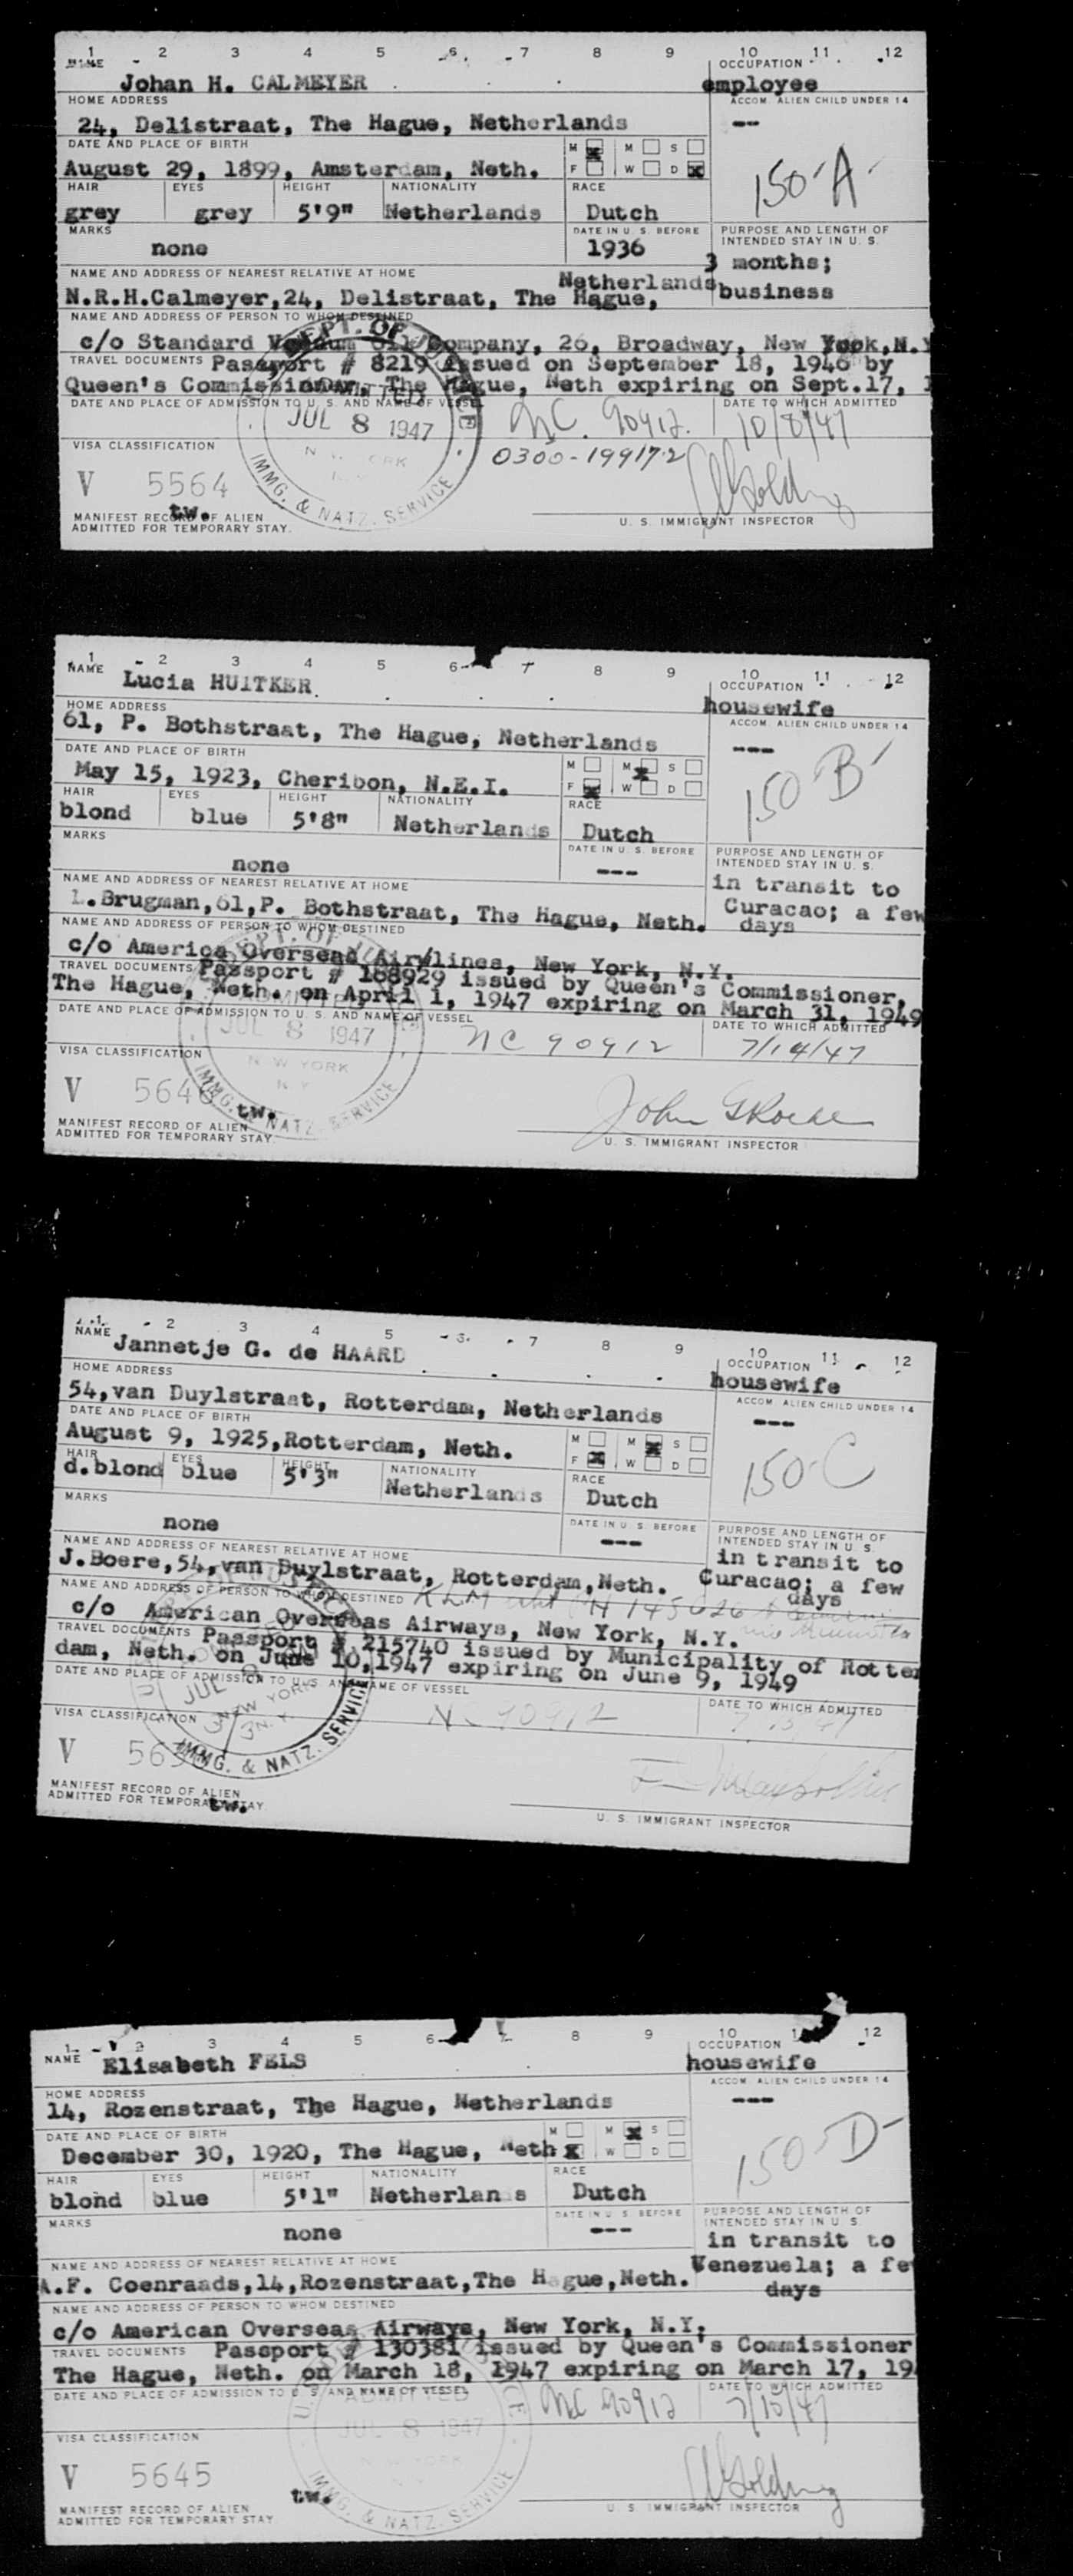 1 2 3 4 5 6 7 8 9 10 11 12
NAME OCCUPATION
Johan H. CALMEYER employee
HOME ADDRESS ACCOM. ALIEN CHILD UNDER 14
24, Delistraat, The Hague, Netherlands --
DATE AND PLACE OF BIRTH M M S
August 29, 1899, Amsterdam, Neth. F W D
150-A-
HAIR EYES HEIGHT NATIONALITY RACE
grey grey 5'9" Netherlands Dutch
MARKS DATE IN U. S. BEFORE PURPOSE AND LENGTH OF INTENDED STAY IN U. S.
none 1936 3 months;
NAME AND ADDRESS OF NEAREST RELATIVE AT HOME Netherlands business
N.R.H.Calmeyer,24, Delistraat, The Hague,
NAME AND ADDRESS OF PERSON TO WHOM DESTINED
c/o Standard Company, 26, Broadway, New York,N.Y
TRAVEL DOCUMENTS Passport # 8219 issued on September 18, 1946 by
Queen's Commissioner, The Hague, Neth expiring on Sept.17, 1
DATE AND PLACE OF ADMISSION TO U. S. AND NAME OF VESSEL DATE TO WHICH ADMITTED
DEPT. OF ADMITTED JUL 8 1947 IMMG. & NATZ. SERVICE
NC 90912. 10/8/47
0300-199172
VISA CLASSIFICATION
V 5564
tw.
MANIFEST RECORD OF ALIEN
ADMITTED FOR TEMPORARY STAY.
U. S. IMMIGRANT INSPECTOR
1 2 3 4 5 6 7 8 9 10 11 12
NAME OCCUPATION
Lucia HUITKER housewife
HOME ADDRESS ACCOM. ALIEN CHILD UNDER 14
61, P. Bothstraat, The Hague, Netherlands ---
DATE AND PLACE OF BIRTH M M S
May 15, 1923, Cheribon, N.E.I. F W D
150-B-
HAIR EYES HEIGHT NATIONALITY RACE
blond blue 5'8" Netherlands Dutch
MARKS DATE IN U. S. BEFORE PURPOSE AND LENGTH OF INTENDED STAY IN U. S.
none --- in transit to
NAME AND ADDRESS OF NEAREST RELATIVE AT HOME Curacao; a few
L.Brugman,61,P. Bothstraat, The Hague, Neth. days
NAME AND ADDRESS OF PERSON TO WHOM DESTINED
c/o America Overseas Airlines, New York, N.Y.
TRAVEL DOCUMENTS Passport # 168929 issued by Queen's Commissioner,
The Hague, Neth. on April 1, 1947 expiring on March 31, 1949
DATE AND PLACE OF ADMISSION TO U. S. AND NAME OF VESSEL DATE TO WHICH ADMITTED
JUL 8 1947 NEW YORK N.Y. IMMG. & NATZ. SERVICE
NC 90912 7/14/47
VISA CLASSIFICATION
V 564
tw.
MANIFEST RECORD OF ALIEN
ADMITTED FOR TEMPORARY STAY.
John
U. S. IMMIGRANT INSPECTOR
1 2 3 4 5 6 7 8 9 10 11 12
NAME OCCUPATION
Jannetje G. de HAARD housewife
HOME ADDRESS ACCOM. ALIEN CHILD UNDER 14
54,van Duylstraat, Rotterdam, Netherlands ---
DATE AND PLACE OF BIRTH M M S
August 9, 1925,Rotterdam, Neth. F W D
150-C
HAIR EYES HEIGHT NATIONALITY RACE
d.blond blue 5'3" Netherlands Dutch
MARKS DATE IN U. S. BEFORE PURPOSE AND LENGTH OF INTENDED STAY IN U. S.
none --- in transit to
NAME AND ADDRESS OF NEAREST RELATIVE AT HOME Curacao; a few
J.Boere,54,van Duylstraat, Rotterdam,Neth. days
NAME AND ADDRESS OF PERSON TO WHOM DESTINED KLM
c/o American Overseas Airways, New York, N.Y.
TRAVEL DOCUMENTS Passport # 215740 issued by Municipality of Rotter
dam, Neth. on June 10,1947 expiring on June 9, 1949
DATE AND PLACE OF ADMISSION TO U. S. AND NAME OF VESSEL DATE TO WHICH ADMITTED
JUL NEW YORK N.Y. IMMG. & NATZ. SERVICE
90912
VISA CLASSIFICATION
V 56
tw.
MANIFEST RECORD OF ALIEN
ADMITTED FOR TEMPORARY STAY
U. S. IMMIGRANT INSPECTOR
1 2 3 4 5 6 7 8 9 10 12
NAME OCCUPATION
Elisabeth FELS housewife
HOME ADDRESS ACCOM. ALIEN CHILD UNDER 14
14, Rozenstraat, The Hague, Netherlands ---
DATE AND PLACE OF BIRTH M M S
December 30, 1920, The Hague, Neth W D
150-D-
HAIR EYES HEIGHT NATIONALITY RACE
blond blue 5'1" Netherlands Dutch
MARKS DATE IN U. S. BEFORE PURPOSE AND LENGTH OF INTENDED STAY IN U. S.
none --- in transit to
NAME AND ADDRESS OF NEAREST RELATIVE AT HOME Venezuela; a fe
A.F. Coenraads,14,Rozenstraat,The Hague,Neth. days
NAME AND ADDRESS OF PERSON TO WHOM DESTINED
c/o American Overseas Airways, New York, N.Y.
TRAVEL DOCUMENTS Passport # 130381 issued by Queen's Commissioner
The Hague, Neth. on March 18, 1947 expiring on March 17, 19
DATE AND PLACE OF ADMISSION TO U. S. AND NAME OF VESSEL DATE TO WHICH ADMITTED
ADMITTED JUL 8 1947 IMMG. & NATZ. SERVICE
NC 90912 7/15/47
VISA CLASSIFICATION
V 5645
tw.
MANIFEST RECORD OF ALIEN
ADMITTED FOR TEMPORARY STAY
U. S. IMMIGRANT INSPECTOR